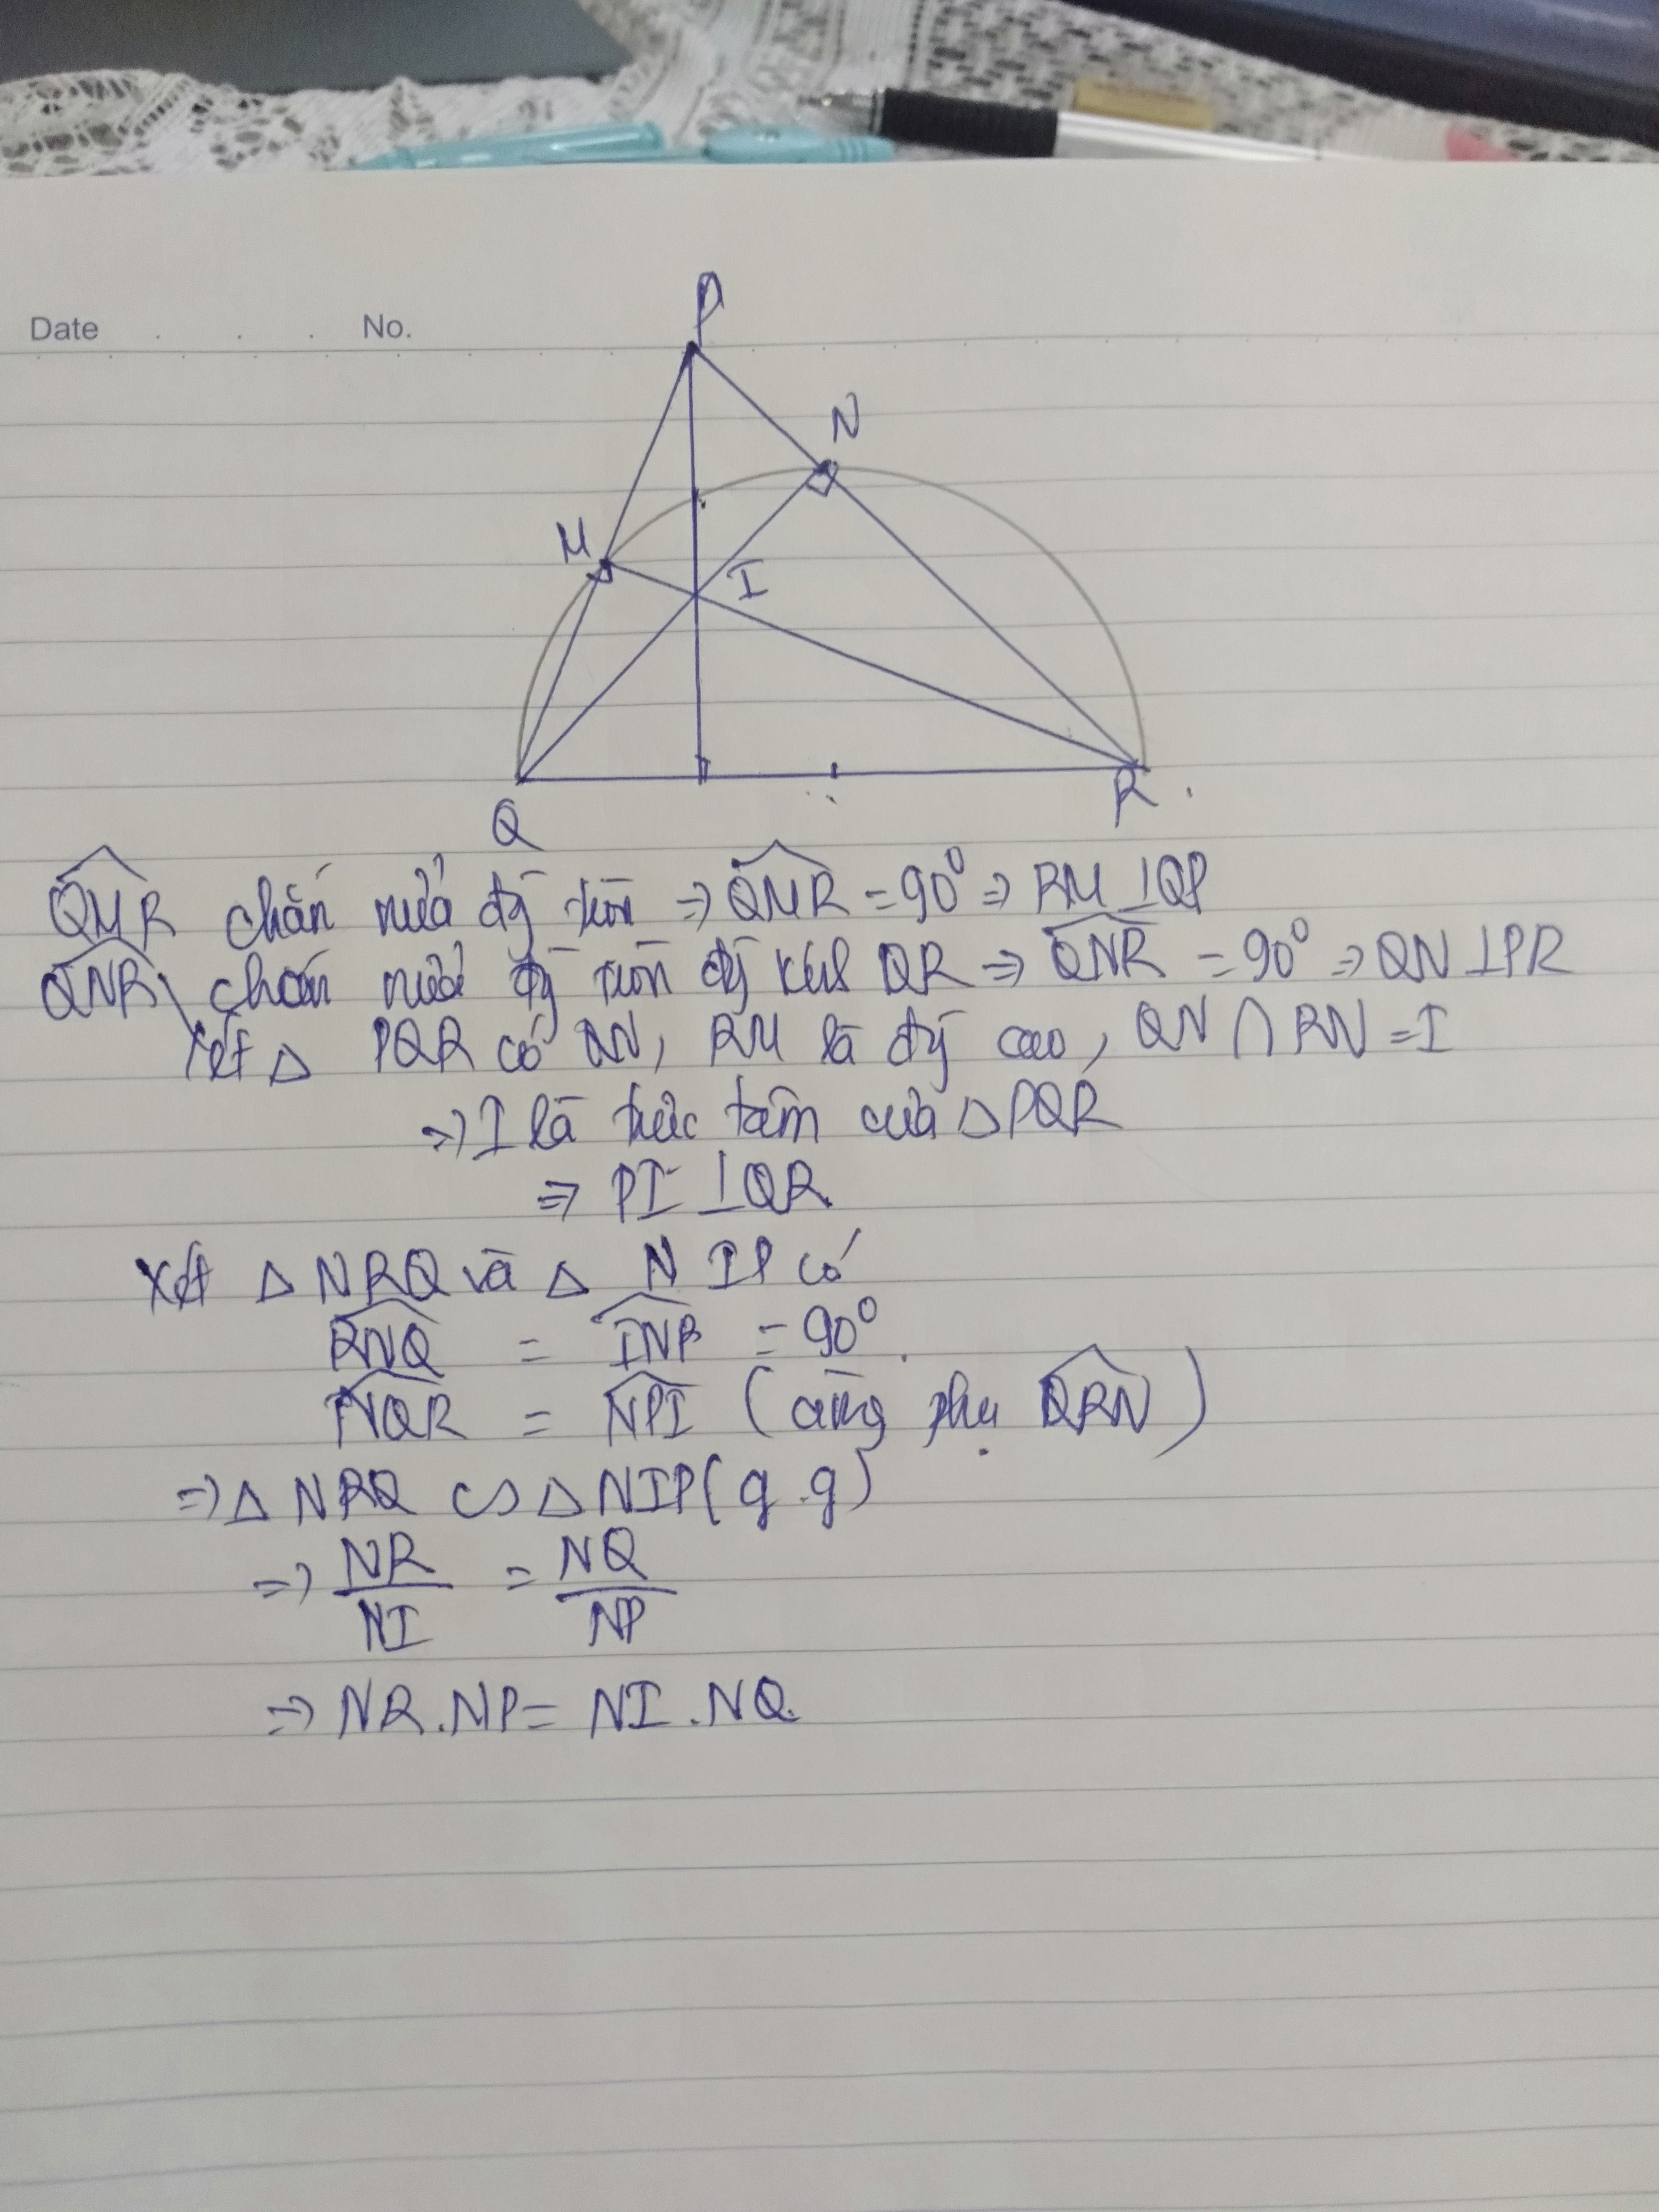 Date No.
P
N
M
I
Q
R
QMR chắn nửa đg tròn => QMR = 90° => RM ⊥ QP
QNR chắn nửa đg tròn đg kính QR => QNR = 90° => QN ⊥ PR
Xét △ PQR có QN, RM là đg cao, QN ∩ RN = I
=> I là trực tâm của △ PQR
=> PI ⊥ QR
Xét △ NRQ và △ NIP có
RNQ = INP = 90°.
NQR = NPI (cùng phụ QRN)
=> △ NRQ ∽ △ NIP (g.g)
=> NR/NI = NQ/NP
=> NR.NP = NI.NQ.